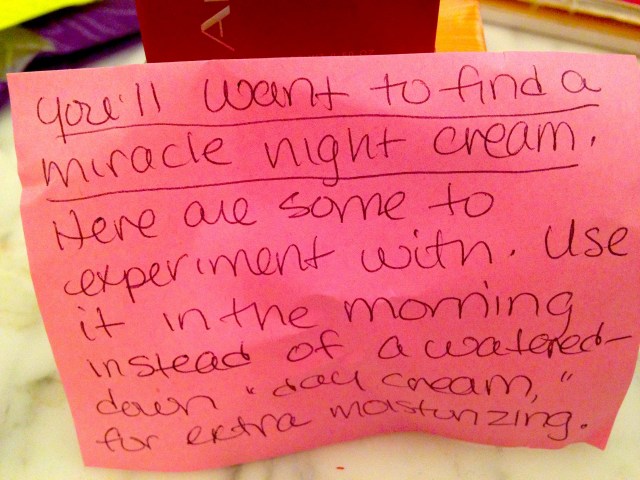 A
You'll want to find a
miracle night cream.
Here are some to
experiment with. Use
it in the morning
instead of a watered-
down "day cream,"
for extra moisturizing.